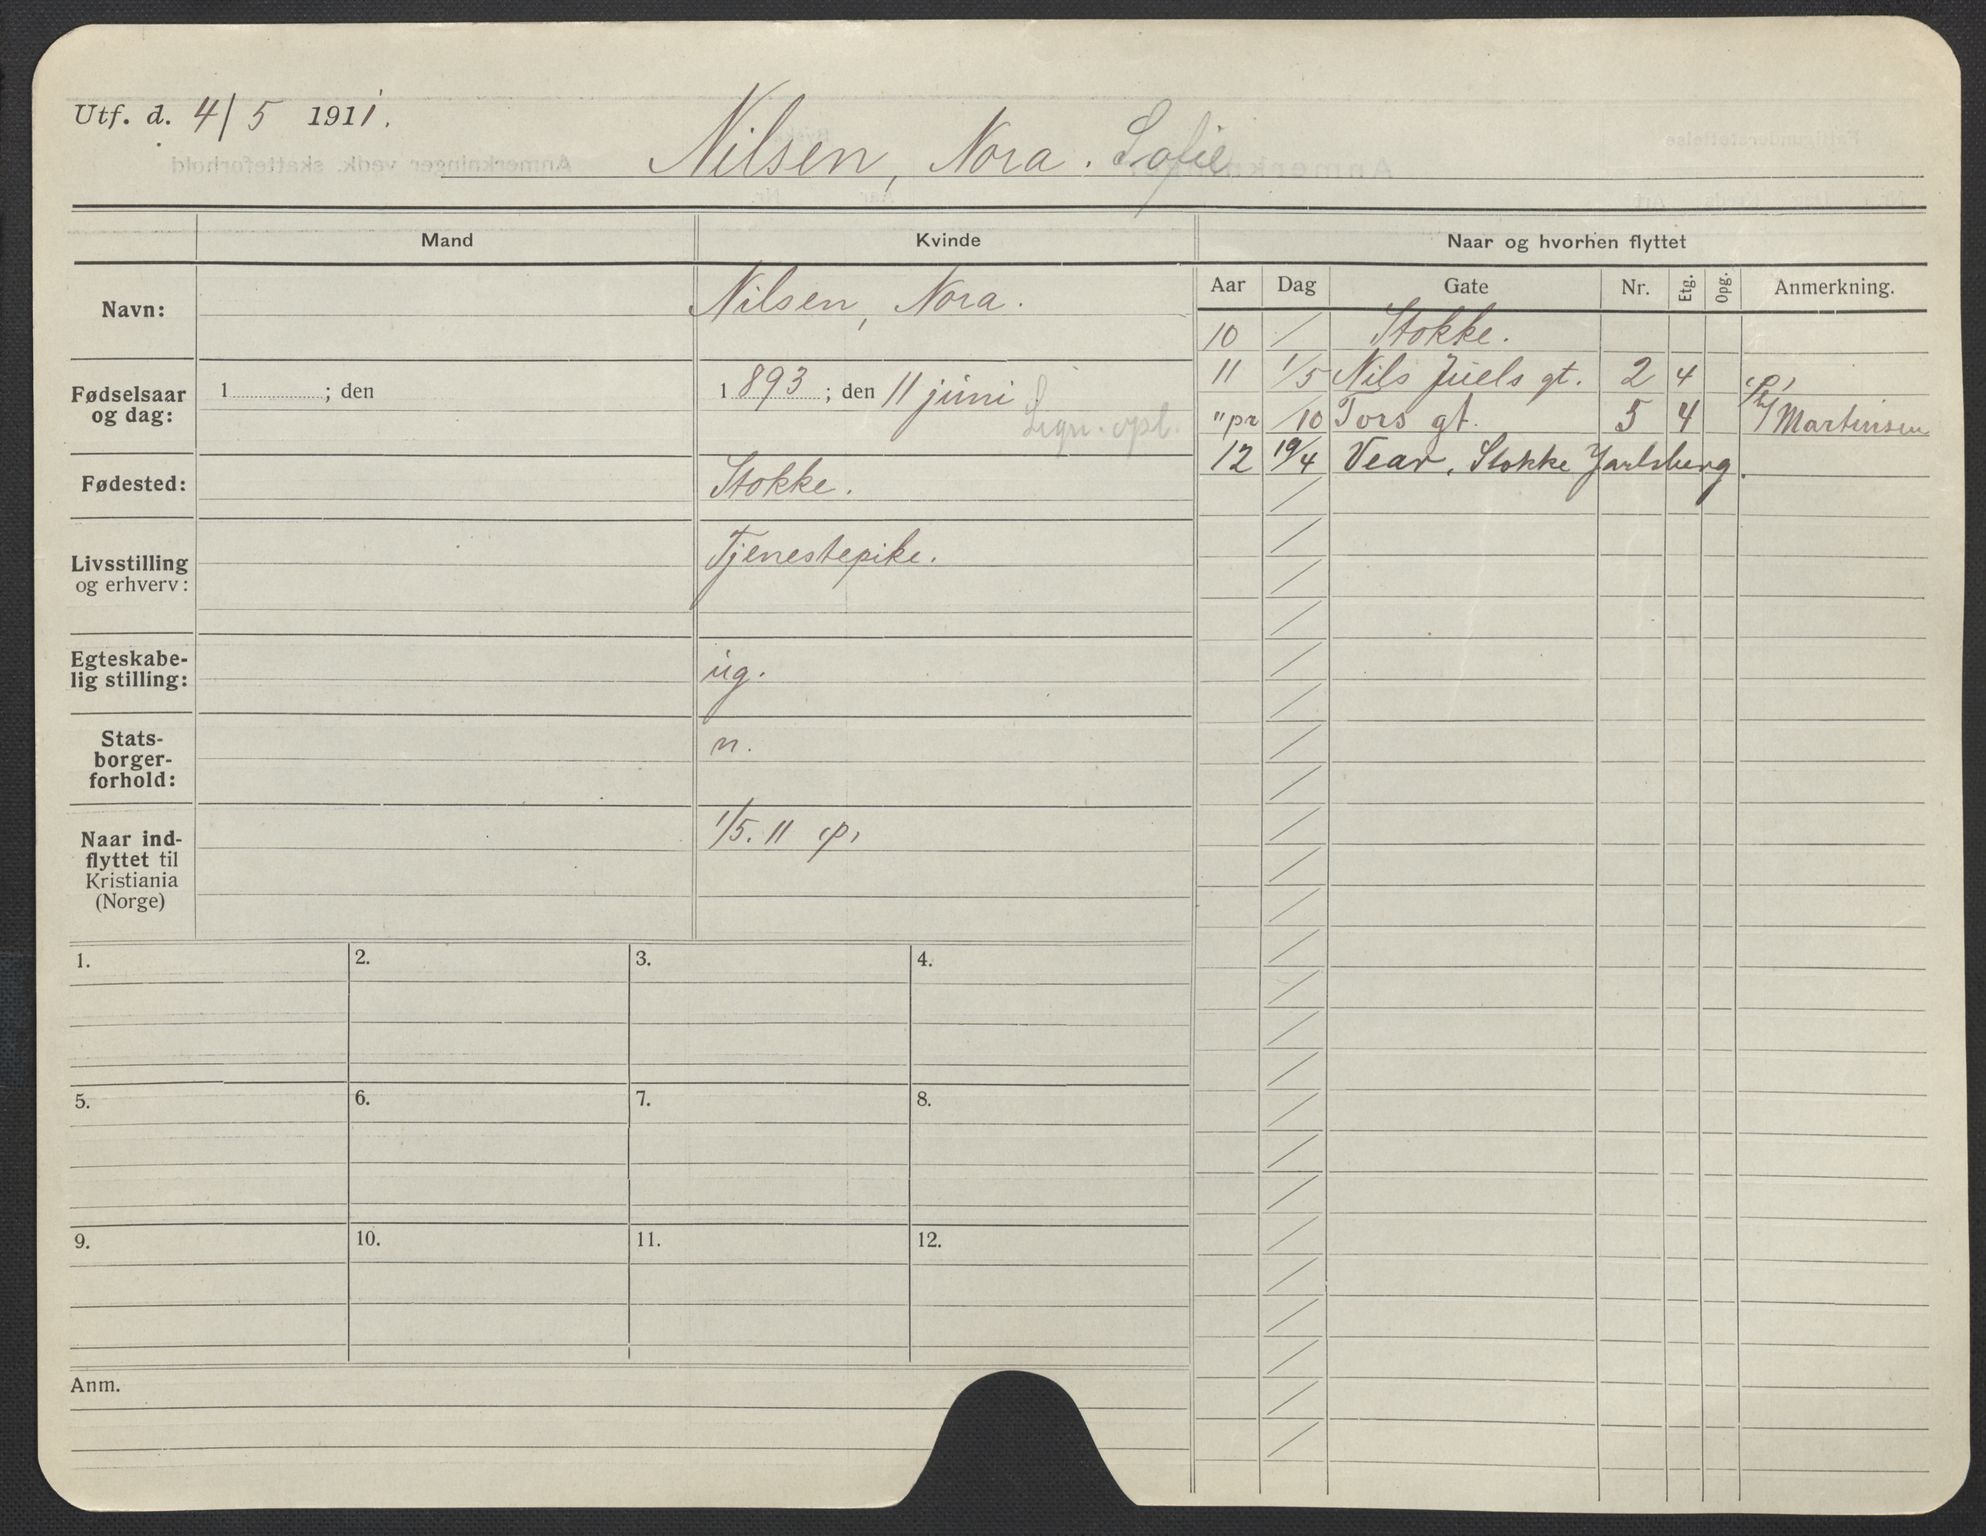 Utf. d. 4/5 1911.
Nilsen, Nora. Sofie
Mand
Kvinde
Naar og hvorhen flyttet
Aar Dag Gate Nr. Etg. Opg. Anmerkning.
Navn:
Nilsen, Nora.
Fødselsaar
og dag:
1 ; den
1893 ; den 11 juni
opl.
Fødested:
Stokke.
Livsstilling
og erhverv:
Tjenestepike.
Egteskabe-
lig stilling:
ug.
Stats-
borger-
forhold:
n.
Naar ind-
flyttet til
Kristiania
(Norge)
1/5. 11 p
10 / Stokke.
11 1/5 Nils Juels gt. 2 4 p
" pr /10 Tors gt. 5 4 h/ Martinsen
12 19/4 Vear, Stokke Jarlsberg.
1.
2.
3.
4.
5.
6.
7.
8.
9.
10.
11.
12.
Anm.